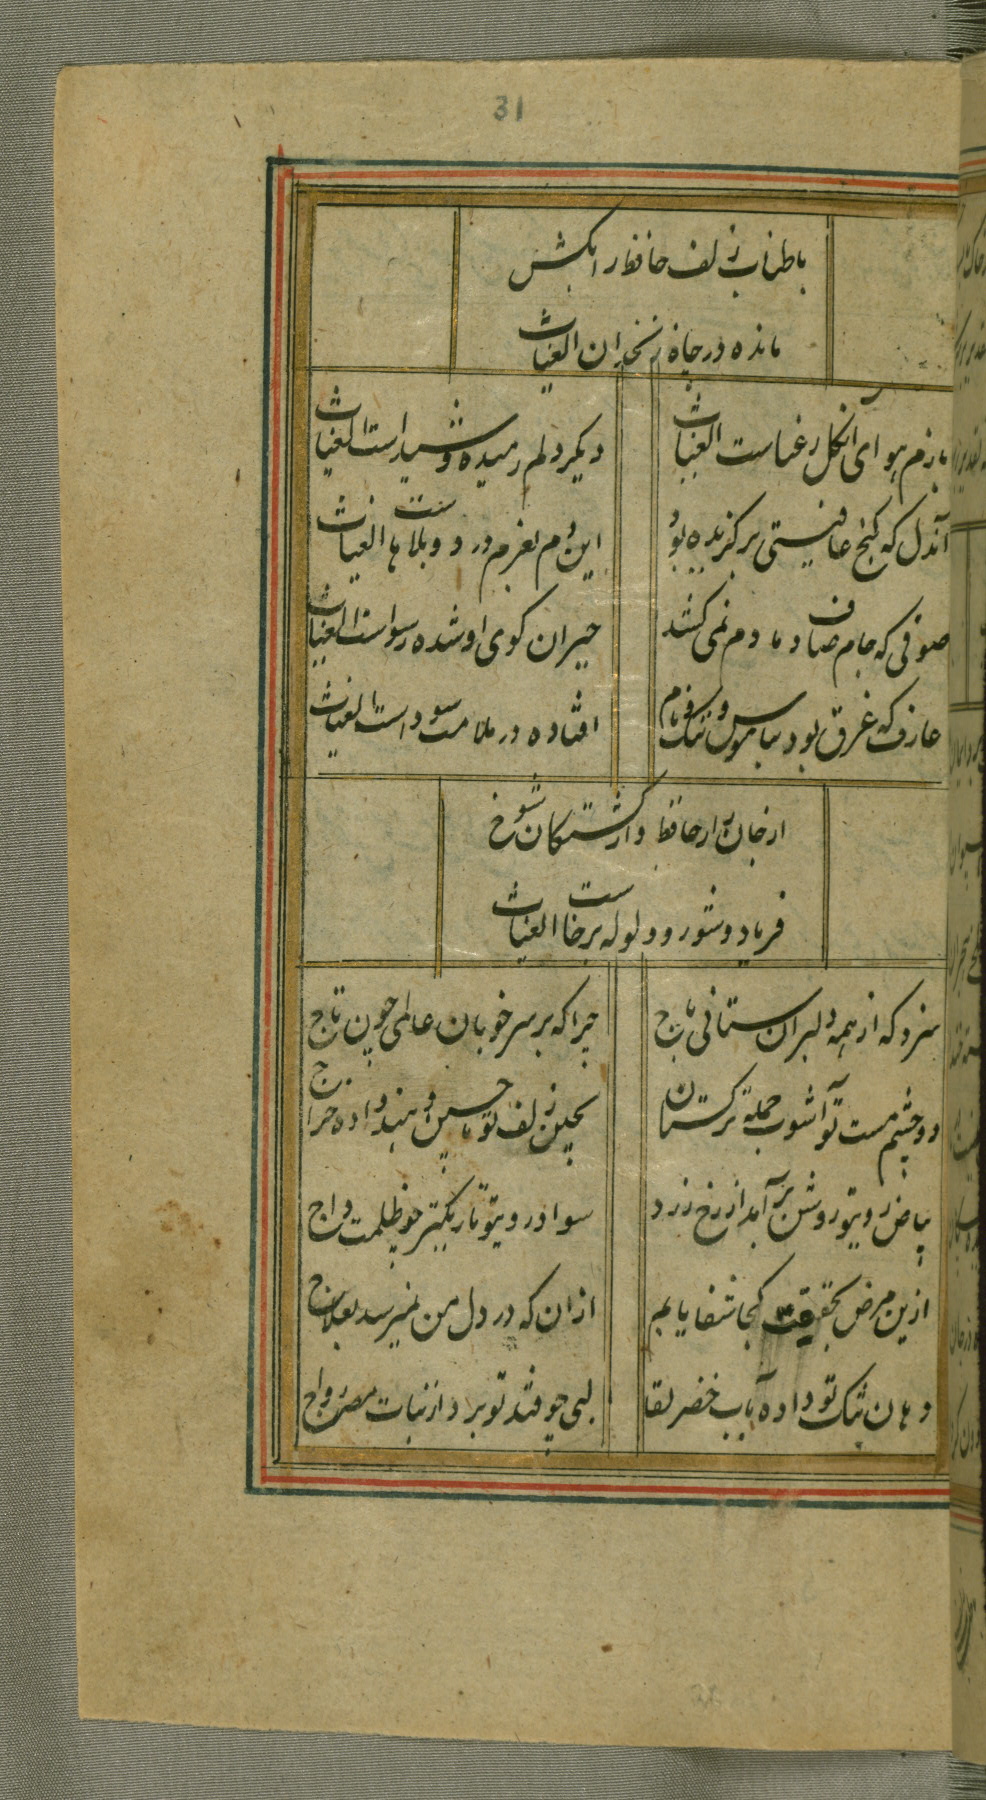 31
باطناب زلف حافظ را بکش
مانده در چاه زنخدان الغیاث
بازم هوای آنگل رعناست الغیاث
دیگر دلم رمیده و شیداست الغیاث
آندل که کنج عافیتی برگزیده بود
این دم بغرم درد و بلاهاست الغیاث
صوفی که جام صاف دمادم نمی کشد
حیران کوی او شده رسواست الغیاث
عارف که غرق بود بناموس و ننک و نام
افتاده در ملامت سوداست الغیاث
از جان زار حافظ و از کشتکان شوخ
فریاد و شور و ولوله برخاست الغیاث
سزد که از همه دلبران ستانی باج
چرا که بر سر خوبان عالمی چون تاج
دو چشم مست تو آشوب جمله ترکستان
بچین زلف تو ماچین و هند داده خراج
بیاض رویتو روشن بر آمد از رخ زرد
سواد رویتو تاریکتر چو ظلمت داج
ازین مرض بحقیقت کجا شفا یابم
ازان که درد دل من نمیرسد بعلاج
دهان تنک تو داده بآب خضر لقا
لبی چو قند تو برد از نبات مصر رواج